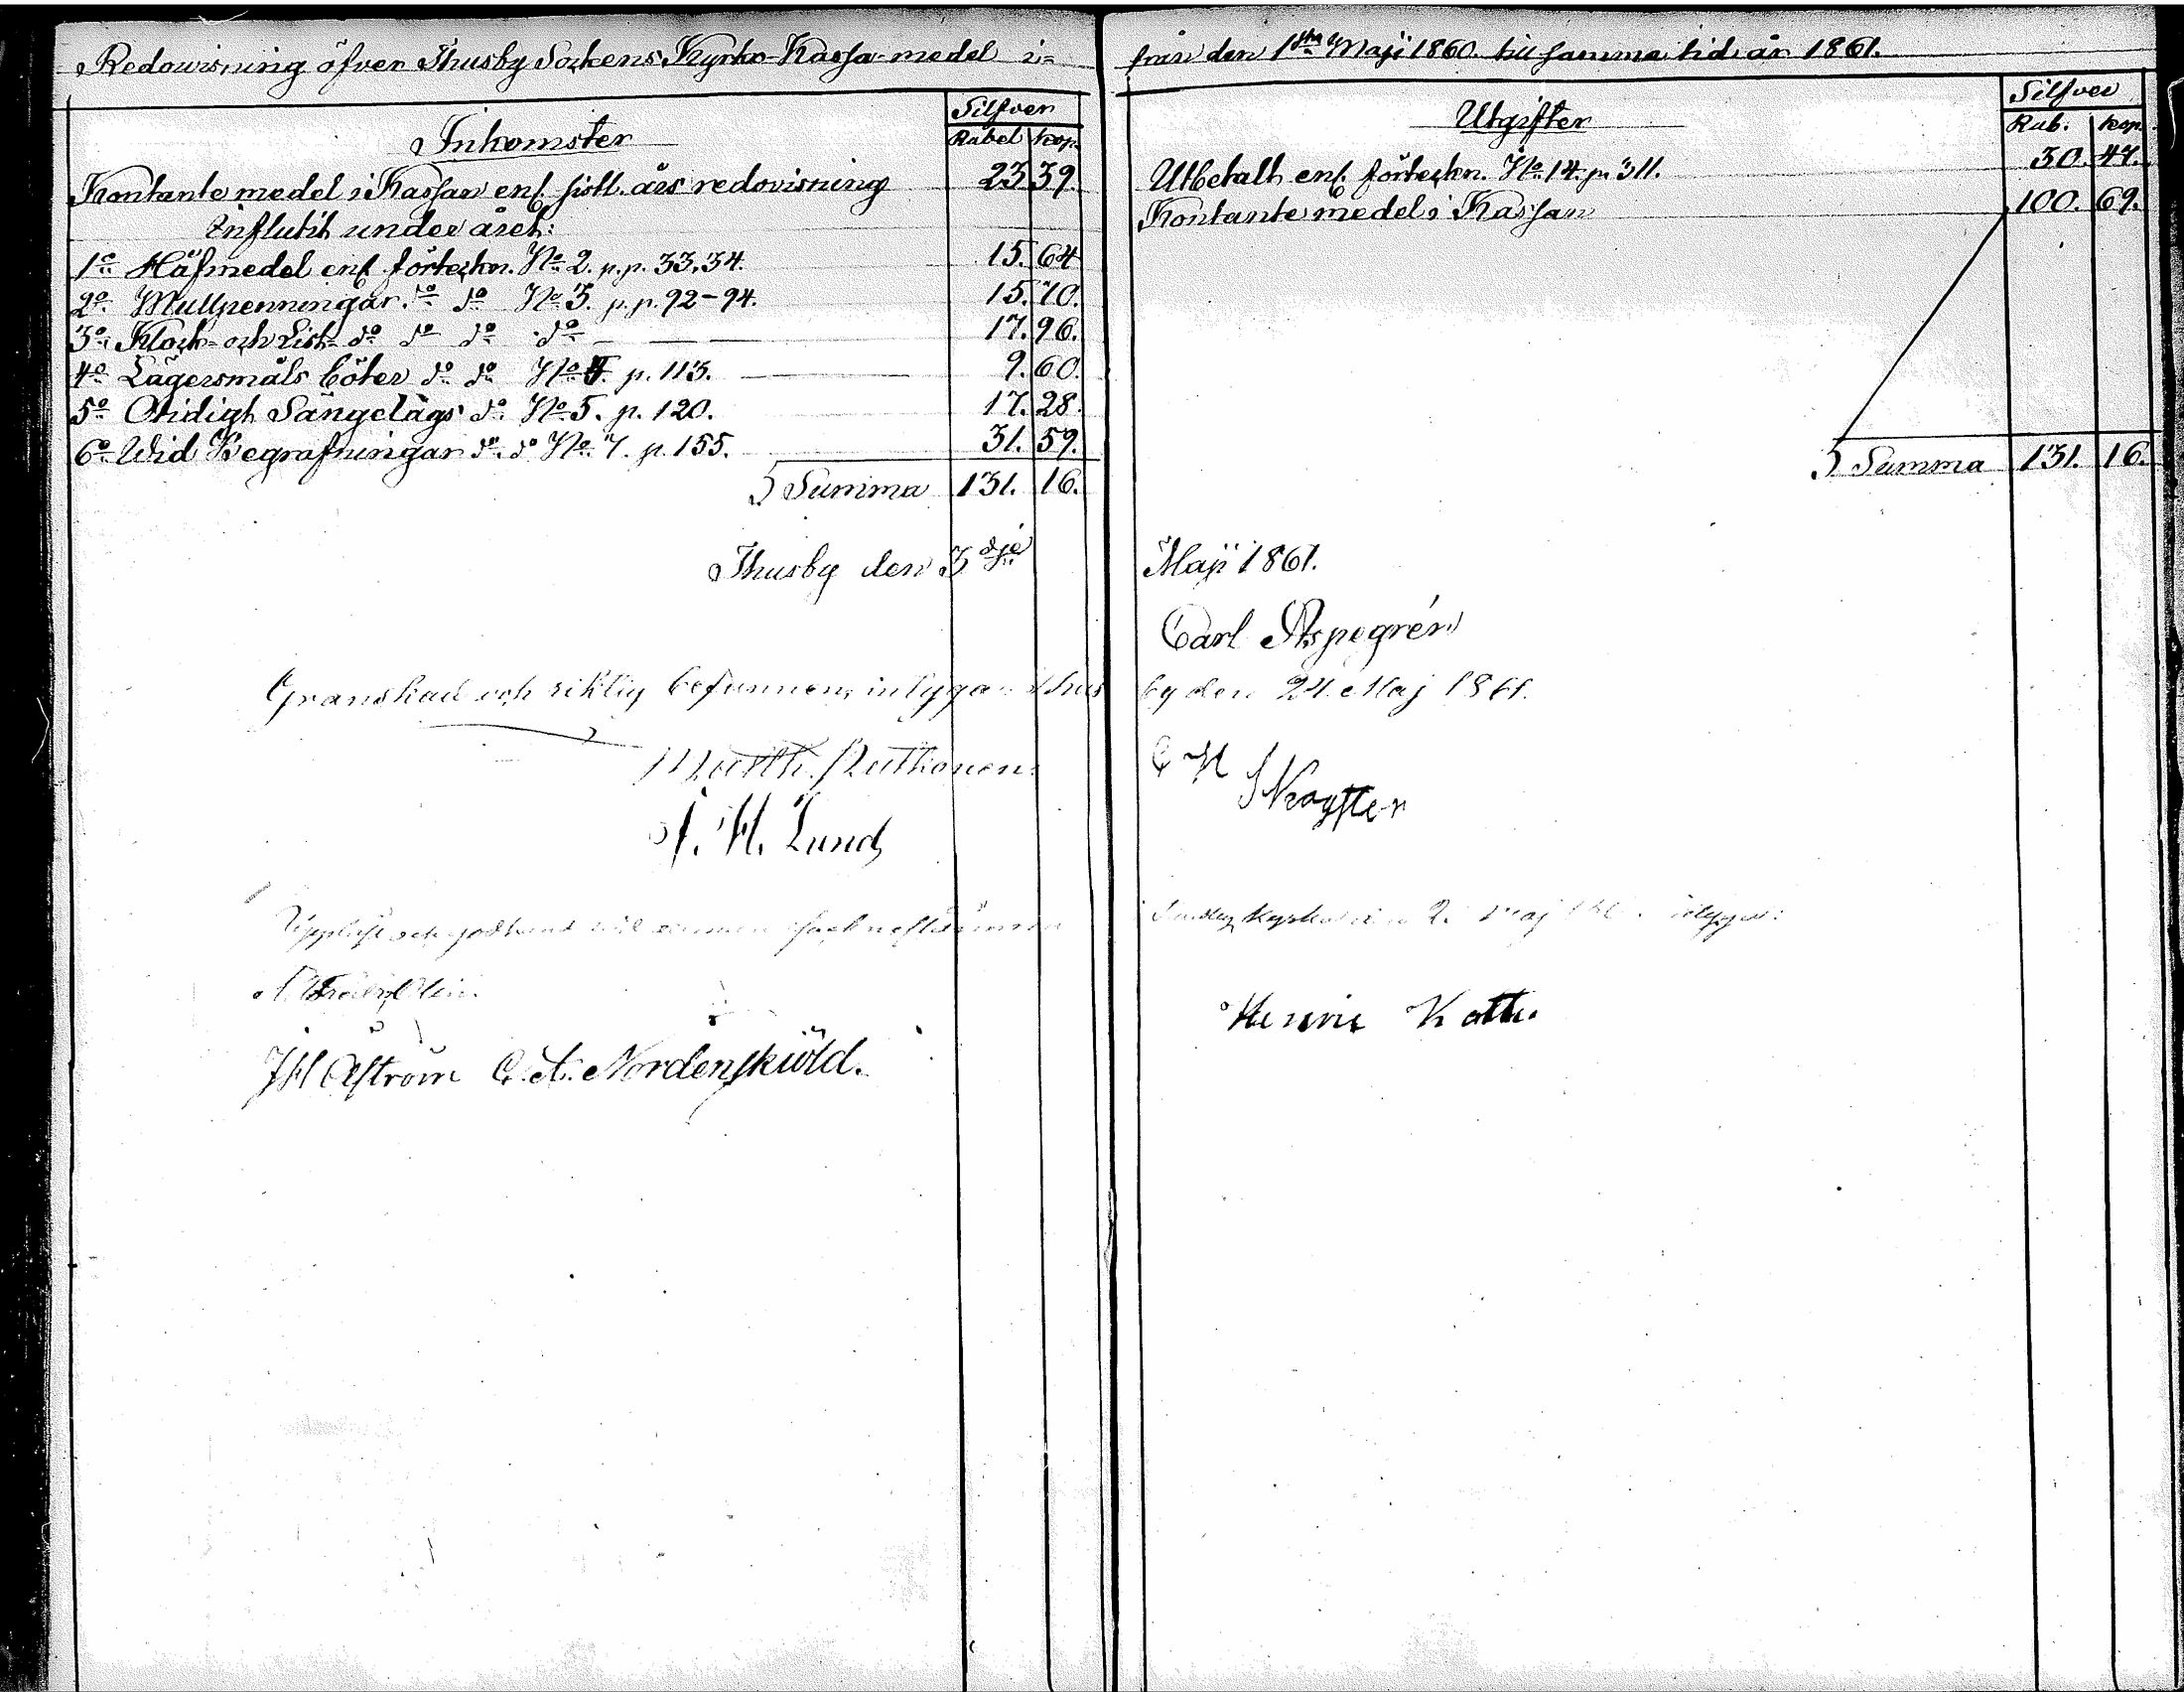 Redovisning öfver Thusby Sockens Kyrko-Kassa-medel i=
från den 1sta Maji 1860 till samma tid år 1861.
Inkomster
Silfver
Rubel Kop.
Kontante medel i Kassan enl. sistl. års redovisning 23 39.
Influtit under året:
1o Håfmedel enl. förteckn. No 2. p.p. 33, 34. 15. 64
2o Mullpenningar do do No 3. p.p. 92-94. 15. 70.
3o Klock- och List- do do do do 17. 96.
4o Lägersmåls böter do do No 4. p. 113. 9. 60.
5o Otidigt Sängelags do No 5. p. 120. 17. 28.
6o Wid Begrafningar do do No 7. p. 155. 31. 59.
Summa 131. 16.
Utgifter
Silfver
Rub. Kop.
Utbetalt enl. förteckn. No 14. p. 311. 30. 47.
Kontante medel i Kassan 100. 69.
Summa 131. 16.
Thusby den 3dje Maji 1861.
Carl Aspegrén
Granskad och riktig befunnen, intyga Thusby den 24 Maj 1861.
A. H. Lund
Maj
J H Åström C. A. Nordenskiöld.